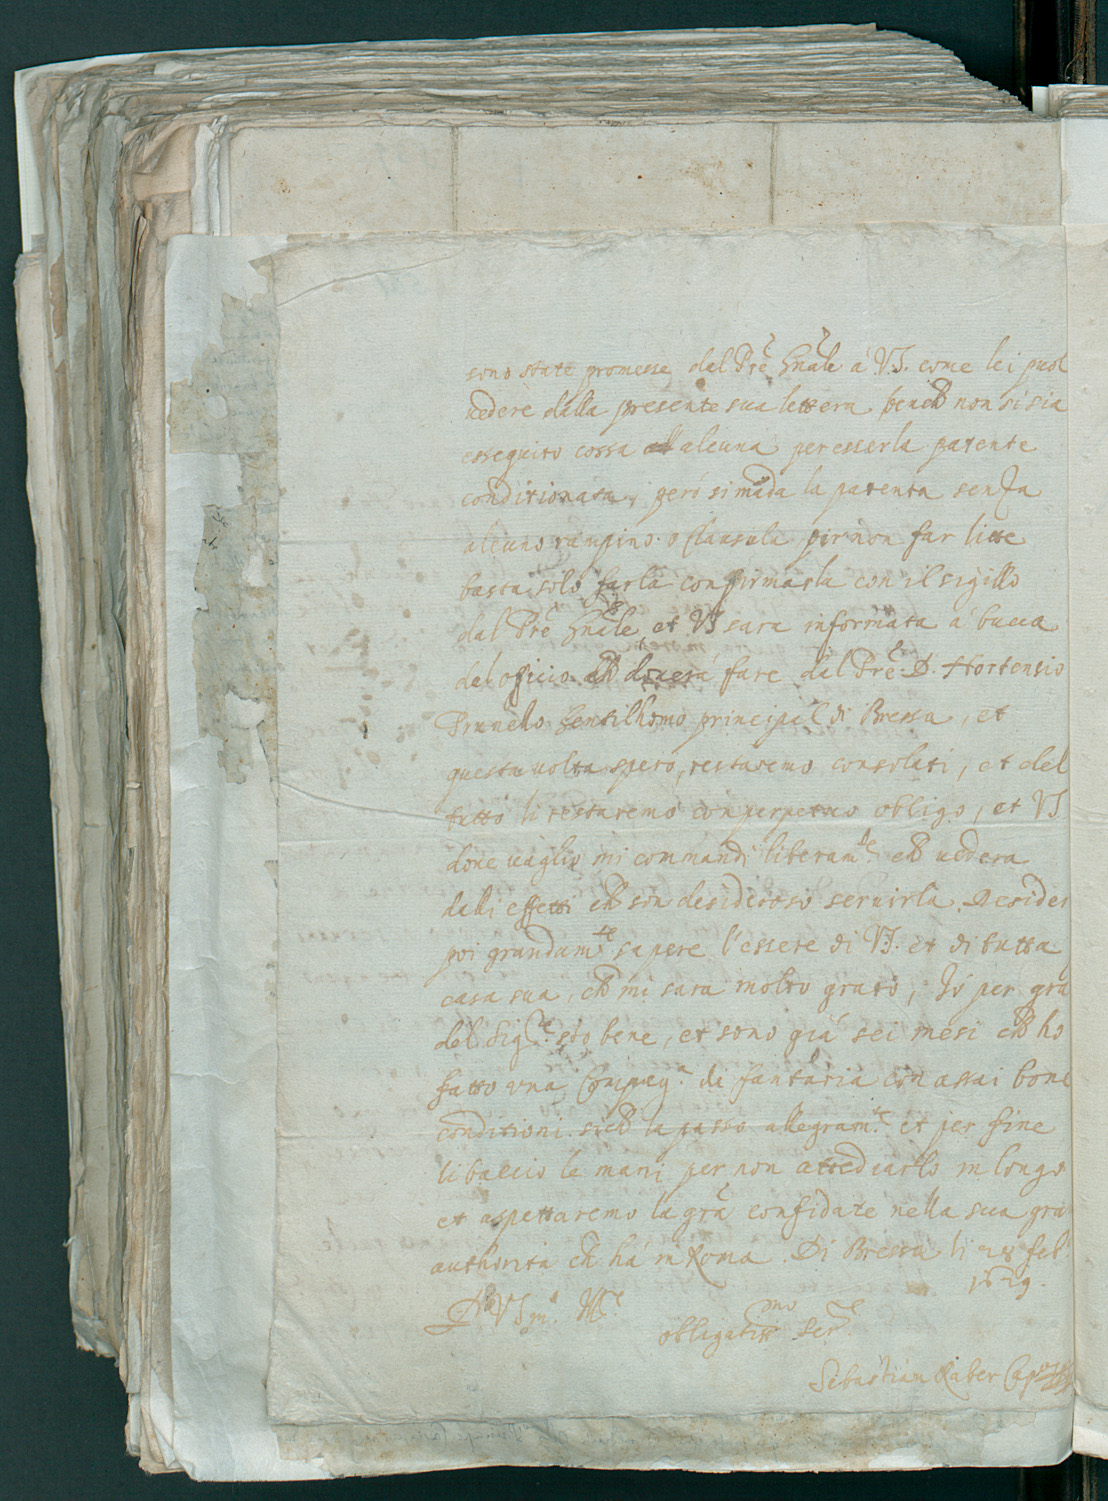 sono state promesse del Prē Gnãle á VS. come lei puol
uedere dalla presente sua lettera, benche non si sia
esseguito cossa alcuna per esserla patente
conditionata, però si mãda la patenta senza
alcuno rampino o clausula per non far litte
basta solo farla confirmarla con il sigillo
dal Prē Gnãle et VS sara informata á bucca
del officio che douerá fare dal Prē. D. Hortensio
Prunello Gentilhomo principal di Bressa, et
questa uolta spero, restaremo consolati, et del
tutto li restaremo con perpetuo obligo, et VS
doue uaglio mi commandi liberamte che uedera
dalli effetti che son desideroso seruirla. Desider
poi grandamte sapere l'essere di VS. et di tutta
casa sua, che mi sara molto grato, Io per gra
del Sigre. sto bene, et sono giá sei mesi che ho
fatto una Compega. di fantaria con assai bone
conditioni siche la passo allegramte. et per fine
li baccio le mani per non attediarlo in longo
et aspettaremo la grã confidate nella sua gra
authoritá che há in Roma. Di Bressa li 28 feb.
1629.
Di VS m.a Me
obligatissmo Sere
Sebastian Raber Capo